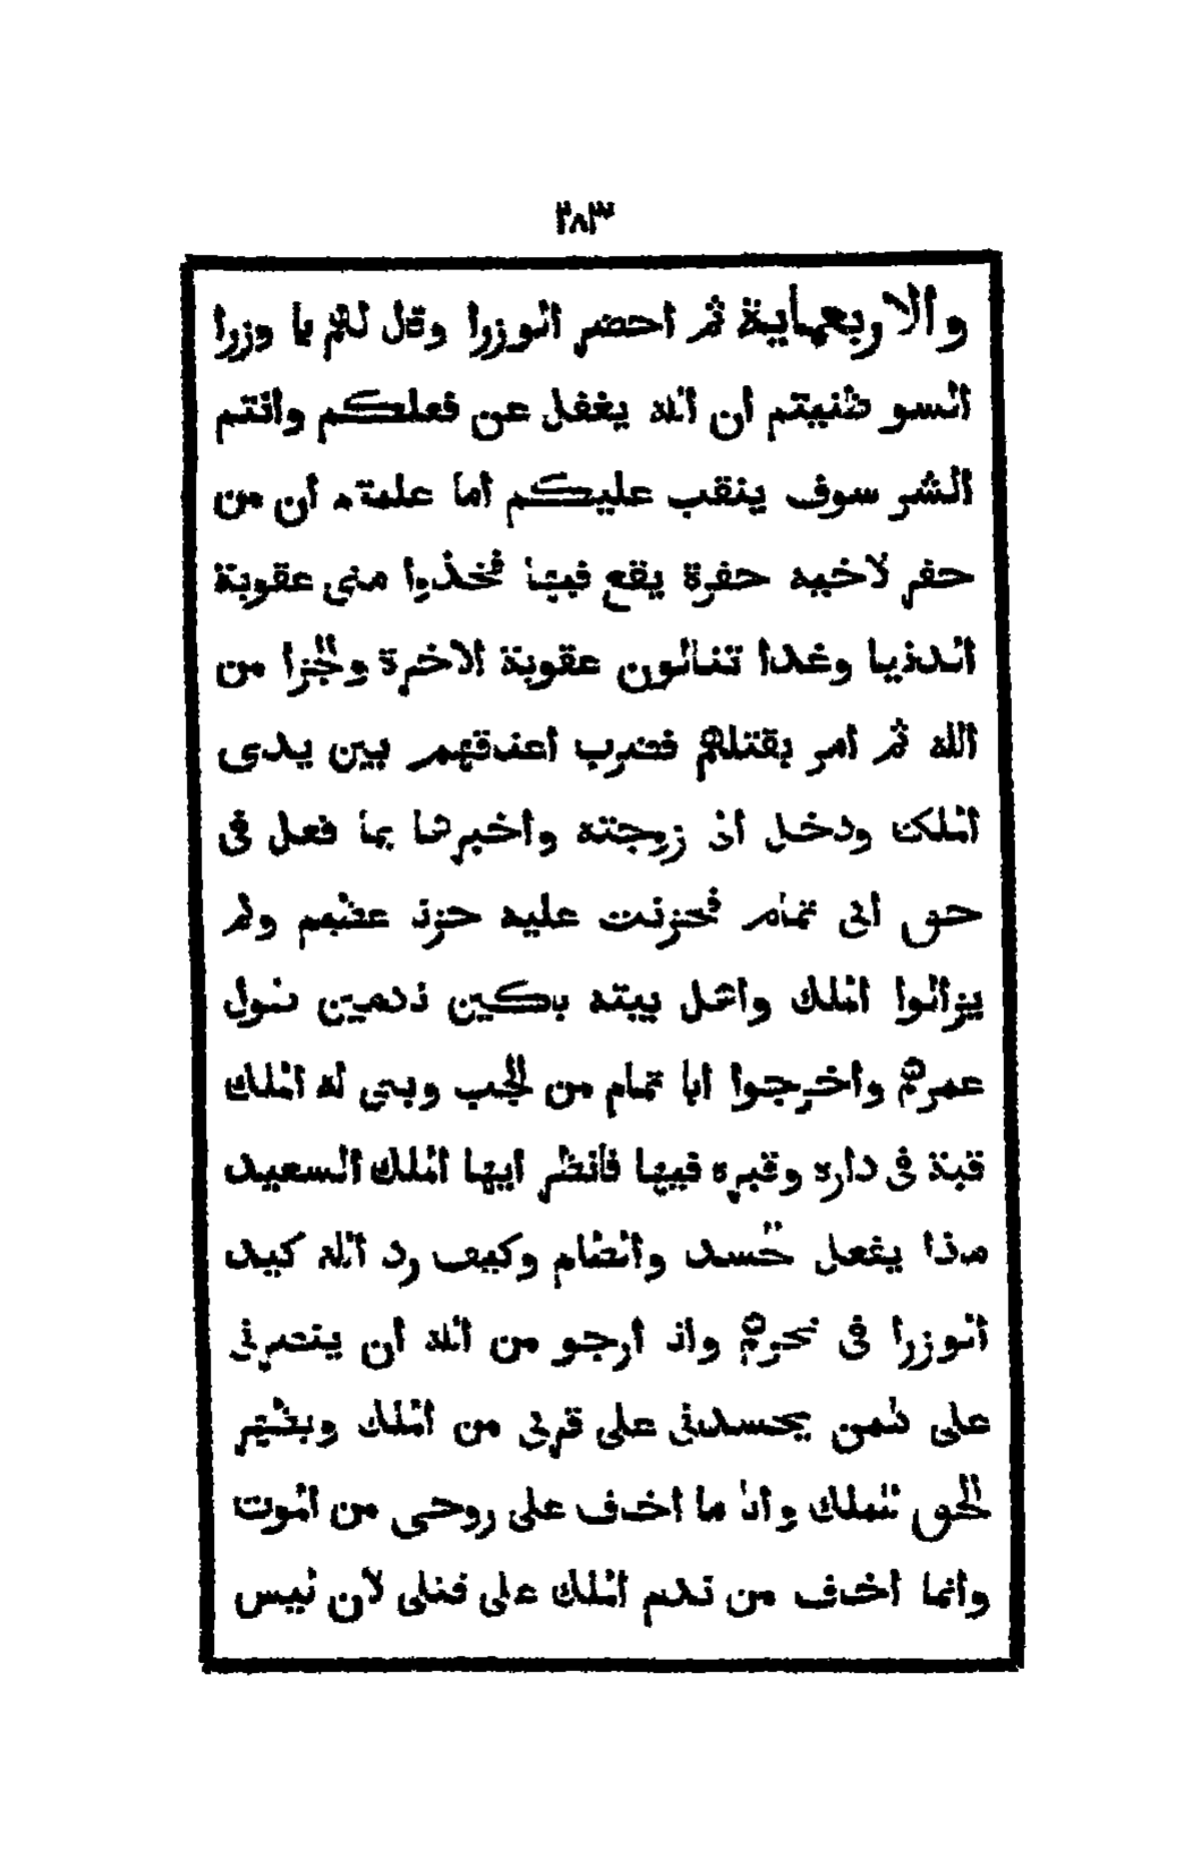 ٢٨٣
والاربعماية ثم احضر الوزرا وقال لهم يا وزرا
السو ظنيتم ان الله يغفل عن فعلكم وانتم
الشر سوف ينقب عليكم اما علمتم ان من
حفر لاخيه حفرة يقع فيها فخذوا منى عقوبة
الدنيا وغدا تنالون عقوبة الاخرة والجزا من
الله ثم امر بقتلهم فضرب اعناقهم بين يدى
الملك ودخل الى زوجته واخبرها بما فعل فى
حق ابى تمام فحزنت عليه حزنا عظيم ولم
يزالوا الملك واهل بيته باكين نادمين طول
عمرهم واخرجوا ابا تمام من الجب وبنى له الملك
قبة فى داره وقبره فيها فانظر ايها الملك السعيد
ماذا يفعل الحسد والظام وكيف رد الله كيد
الوزرا فى نحرهم وانا ارجو من الله ان ينصرنى
على كلمن يحسدنى على قربى من الملك ويظهر
الحق للملك وانا ما اخاف على روحى من الموت
وانما اخاف من ندم الملك على قتلى لان ليس